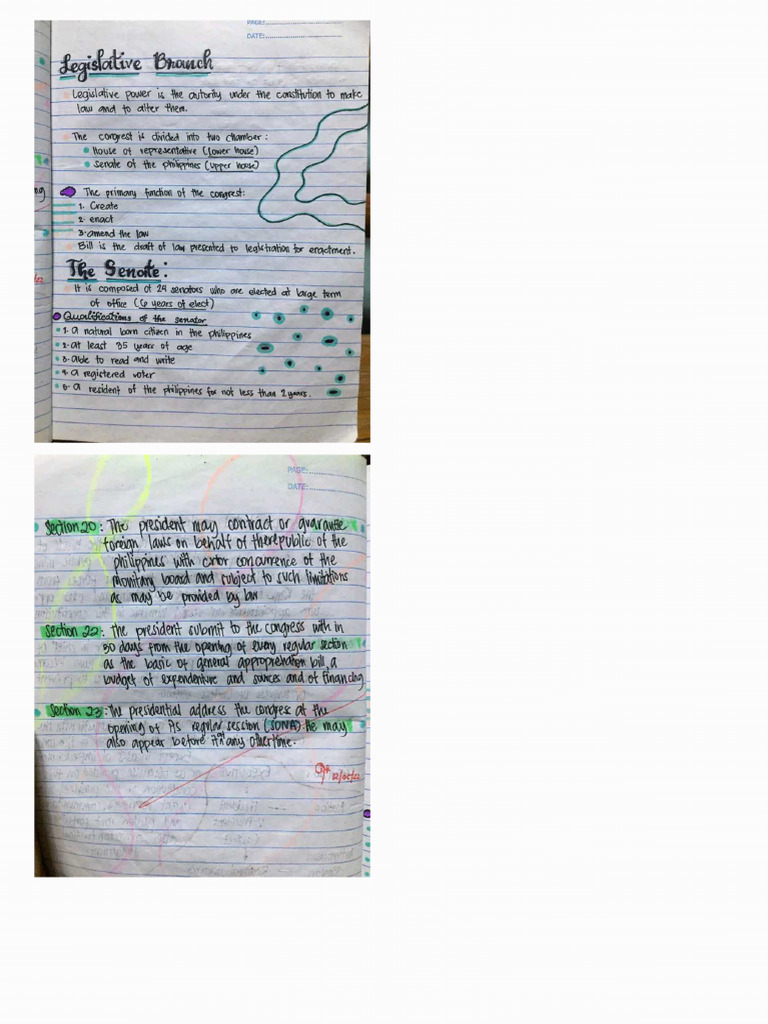 PAGE:
DATE:
Legislative Branch
Legislative power is the autority under the constitution to make
law and to alter them.
The congrest is divided into two chamber:
House of representative (lower house)
Senate of the philippines (upper house)
The primary function of the congrest:
1. Create
2. enact
3. amend the law
Bill is the draft of law presented to legistration for enactment.
The Senate:
It is composed of 24 senators who are elected at large term
of office (6 years of elect)
Qualifications of the senator
1. a natural born citizen in the philippines
2. at least 35 years of age
3. able to read and write
4. a registered voter
5. a resident of the philippines for not less than 2 years.
PAGE:
DATE:
Section 20: The president may contract or guarantee
foreign laws on behalf of the republic of the
philippines with concurrence of the
monitary board and subject to such limitations
as may be provided by law
Section 22: the president submit to the congress with in
30 days from the opening of every regular section
as the basic of general appropretration bill, a
budget of expenditure and sources and of financing
Section 23: The presidential address the congress at the
opening of its regular session (SONA). He may
also appear before it any other time.
12/05/22